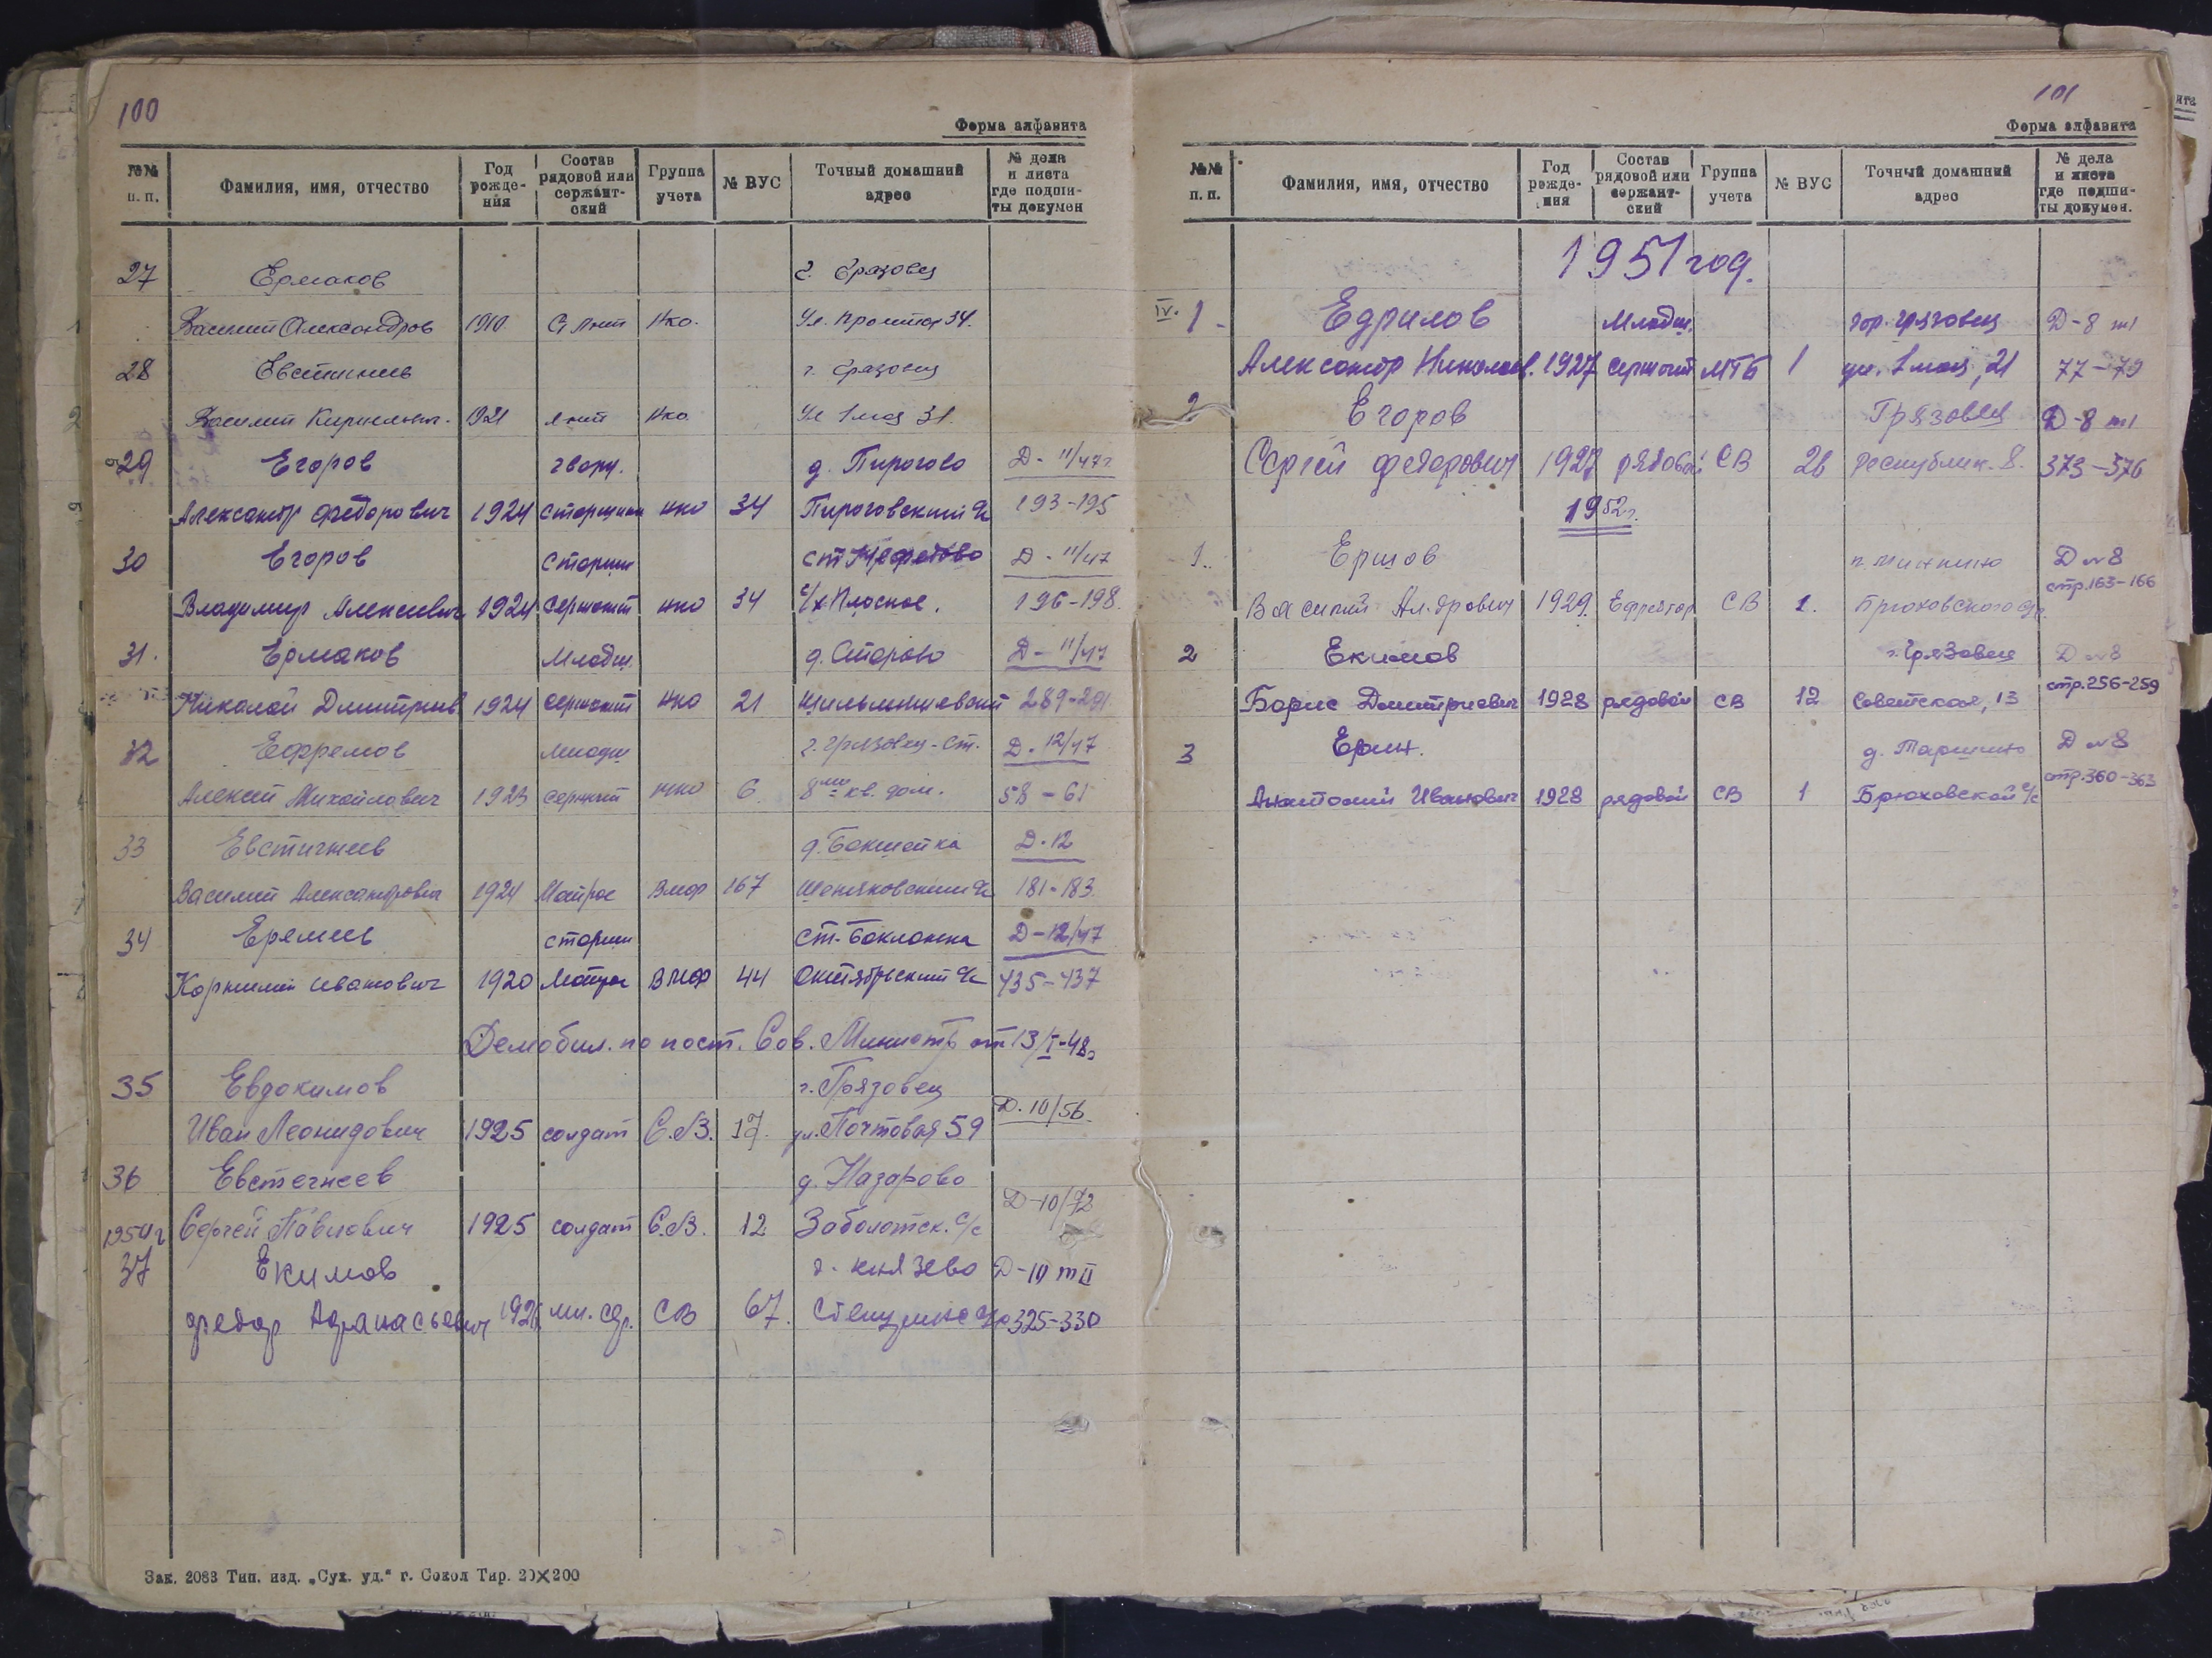 100
Форма алфавита
№№ п. п. Фамилия, имя, отчество Год рожде-ния Состав рядовой или сержант-ский Группа учета № ВУС Точный домашний адрес № дела и листа где подши-ты докумен
27 Ермаков г. Грязовец
Василий Александров 1910 Ст Лнт Нко. Ул. 34.
28 Евстигнеев г. Грязовец
Василий Кирилович. 1921 Лнт Нко Ул 1 мая 31.
29 Егоров гвард. д. Пирогово Д-11/47г
Александр Федорович 1924 старшина нко 34 Пироговский с/с 193-195
30 Егоров Старши ст Д-11/47
Владимир Алексеевич 1924 сержант нко 34 с/х Плоское. 196-198.
31. Ермаков Младш. д. Старово Д-11/47
Николай Дмитриев 1924 сержант нко 21 289-291
32 Ефремов младш г. Грязовец-ст. Д. 12/47
Алексей Михайлович 1923 сержант нко 6 8ми кв. дом. 58-61
33 Евстигнеев д. Бакшейка Д. 12
Василий Александрович 1924 Матрос Вмф 167 с/с 181-183
34 Еремеев старши ст. Бакланка Д-12/47
Корнилий Иванович 1920 Матрос ВМФ 44 Октябрьский с/с 435-437
Демобил. по пост. Сов. Министр от 13/I-48г
35 Евдокимов г. Грязовец
Иван Леонидович 1925 солдат С.В. 17. ул. Почтовая 59 Д. 10/56
36 Евстегнеев д. Назарово
Сергей Павлович 1925 солдат С.В. 12 Заболотск. с/с Д-10/72
1954г
37 Екимов д. Князево Д-10 т II
Федор Афанасьевич 1926 мл. сер. СВ 67. 325-330
Зак. 2083 Тип. изд. „Сух. уд.“ г. Сокол Тир. 20×200
101
Форма алфавита
№№ п. п. Фамилия, имя, отчество Год рожде-ния Состав рядовой или сержант-ский Группа учета № ВУС Точный домашний адрес № дела и листа где подши-ты докумен.
1951 год.
IV. 1 - Едрилов Младш. гор. Грязовец Д-8 т1
Александр Николаев. 1927 сержант МГБ 1 ул. 1 мая, 21 77-79
2 Егоров Грязовец Д-8 т1
Сергей Федорович 1927 рядовой СВ 26 Республик. 8. 373-376
1952г.
1. Ершов Д №8
Василий Ал-дрович 1929. Ефрейтор СВ 1. стр. 163-166
2 Екимов г. Грязовец Д №8
Борис Дмитриевич 1928 рядовой СВ 12 Советская, 13 стр. 256-259
3 Ерин. д. Д №8
Анатолий Иванович 1928 рядовой СВ 1 Брюховской с/с стр. 360-363